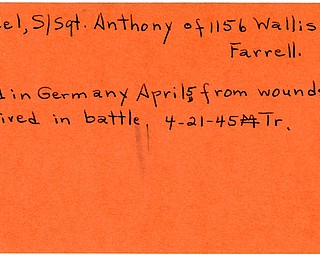 el, S/Sgt. Anthony of 1156 Wallis
Farrell.
d in Germany April 5 from wounds
ived in battle. 4-21-45 Tr.